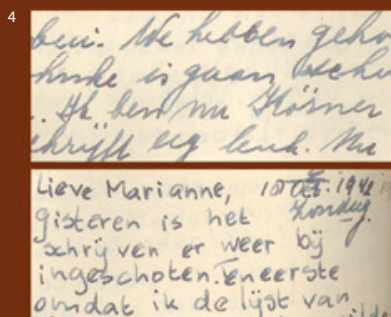 4
ben. We hebben geho
hinke is gaan scha
. Ik ben nu Körner
schrijft erg leuk. Nu
Lieve Marianne, 18 Oct. 1942
Zondag.
gisteren is het
schrijven er weer bij
ingeschoten. Teneerste
omdat ik de lijst van